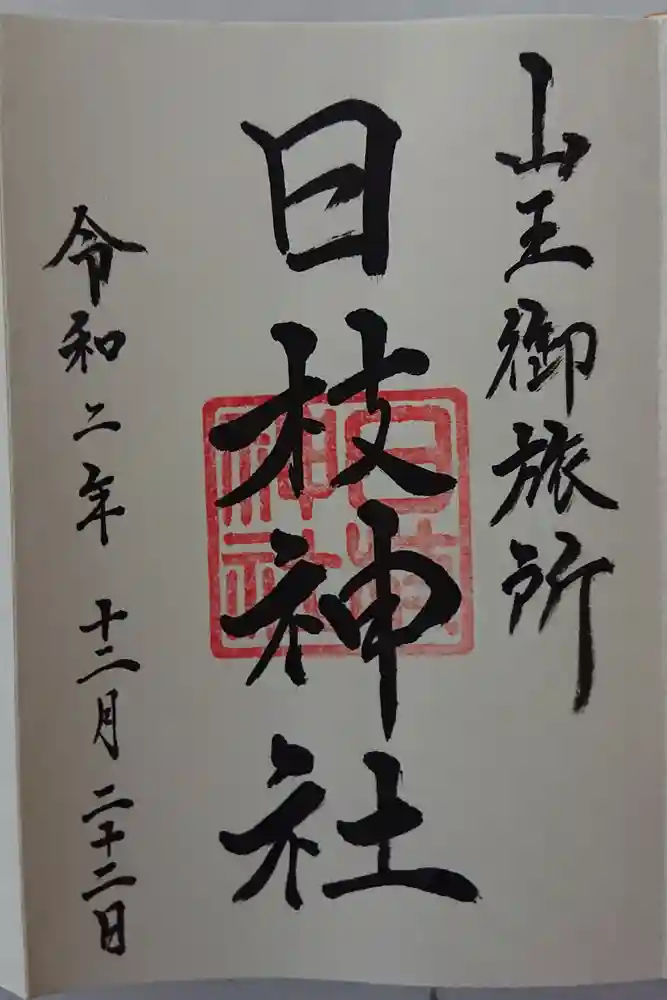 山王御旅所
日枝神社
日枝神社
令和二年十二月二十二日